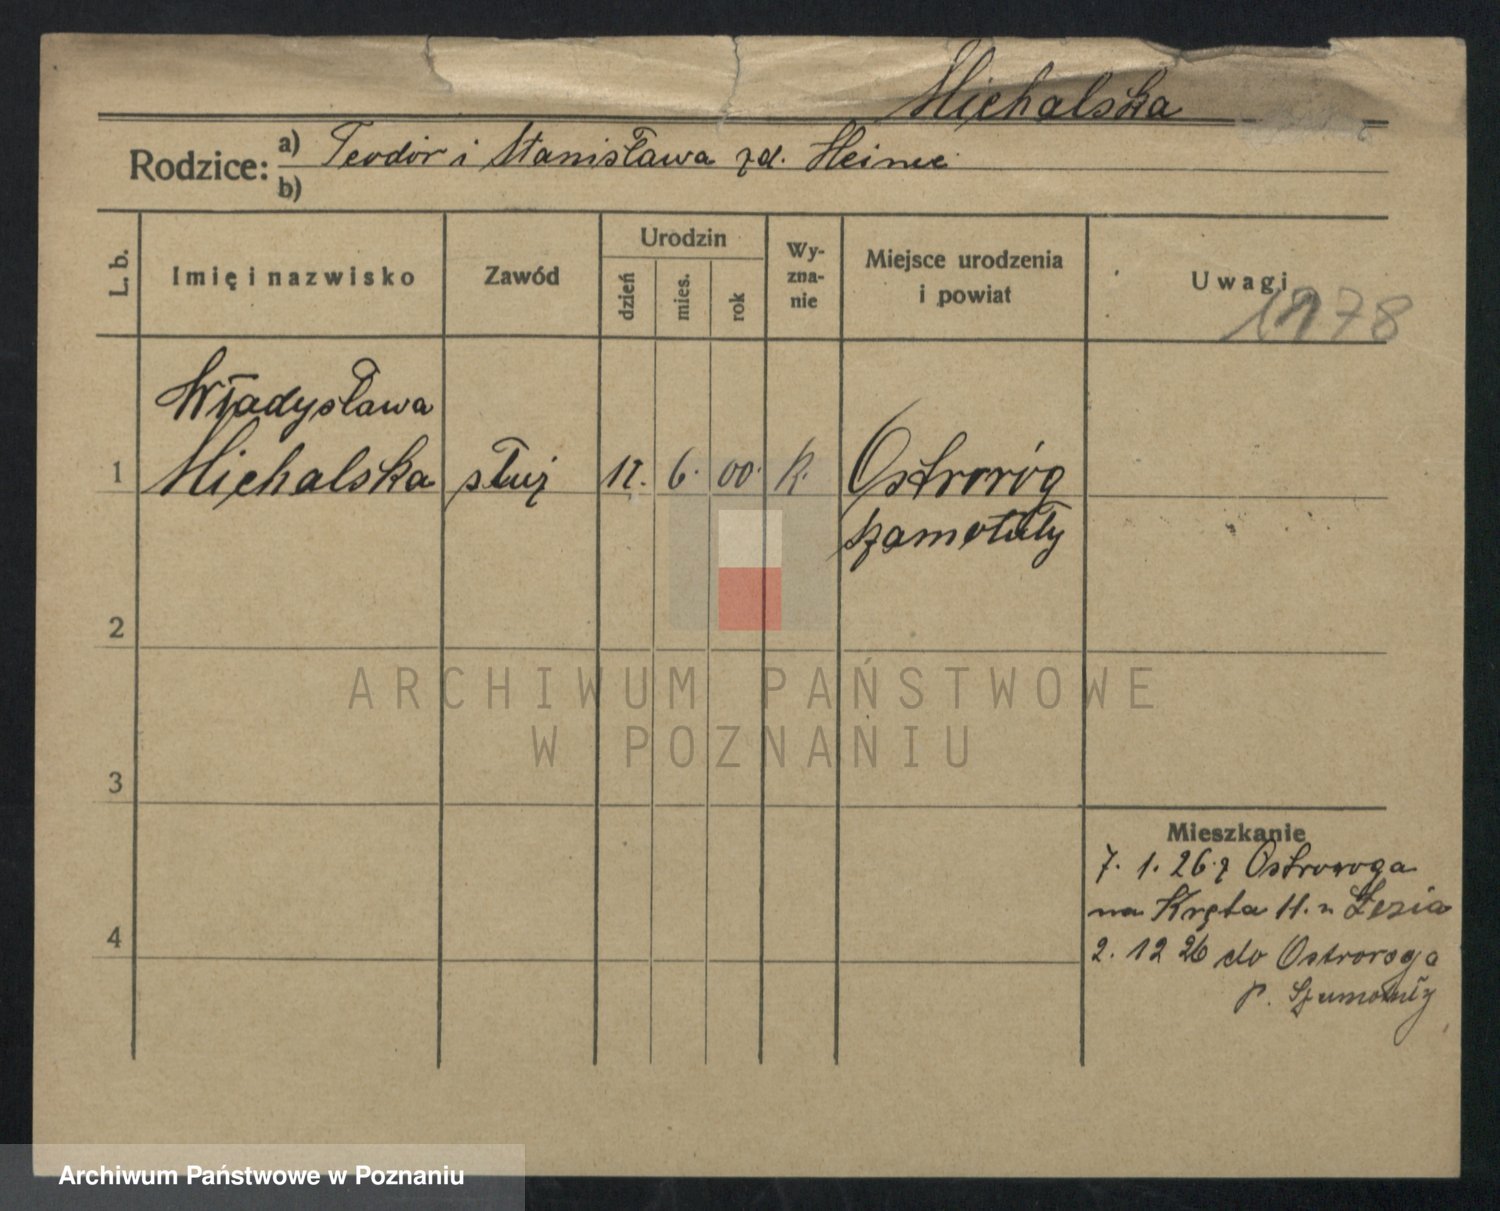 Michalska
Rodzice: a) Teodor i Stanisława zd. Heinze
b)
L. b. Imię i nazwisko Zawód Urodzin dzień mies. rok Wy-zna-nie Miejsce urodzenia i powiat Uwagi
1978
Władysława
1 Michalska służ 17. 6. 00. k. Ostroróg
Szamotuły
2
ARCHIWUM PAŃSTWOWE
W POZNANIU
3
Mieszkanie
7. 1. 26. z Ostroroga
na Kręta 11.
4
2. 12 26 do Ostroroga
p. Szamotuły
Archiwum Państwowe w Poznaniu